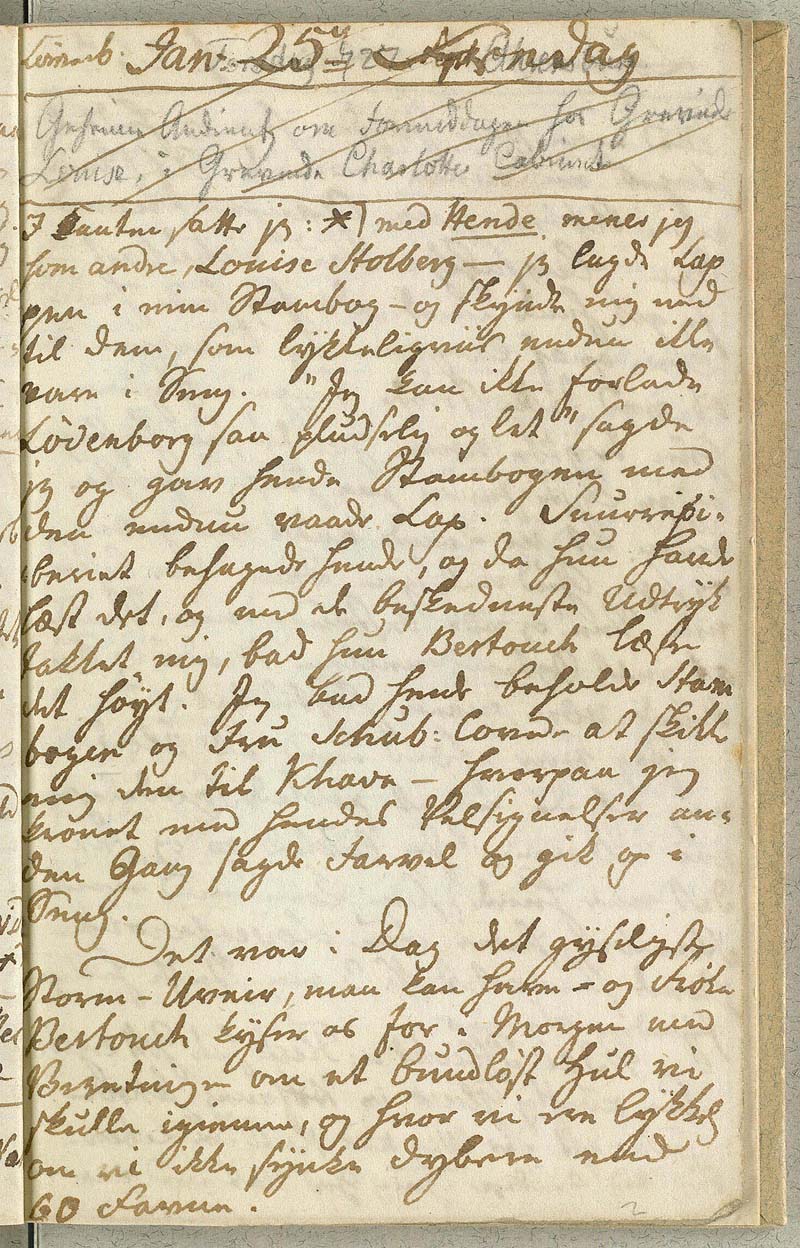 Løvenb. Jan 25 Søndag
Geheime Audients om Formiddagen hos Grevinde
Louise, i Grevinde Charlottes Cabinet
I Tanter satte jeg: *) med Hende mener jeg
som andre, Louise Stolberg — jeg lagde Lap
pen i min Stambog — og skyndte mig ned
til dem, som lykkeligviis endnu ikke
vare i Seng. "Jeg kan ikke forlade
Løvenborg saa pludselig og let" sagde
jeg og gav hende Stambogen med
den endnu vaade Lap. Snurrepi-
beriet behagede hende, og da hun havde
læst det, og med de beskedneste Udtryk
takket mig, bad hun Bertouch læse
det høyt. Jeg bad hende beholde Stam
bogen og Fru Schub: lovede at skikke
mig den til Khavn — hvorpaa jeg
kronet med hendes Velsignelser an-
den Gang sagde Farvel og gik op i
Seng.
Det var i Dag det gyseligste
Storm-Uveir, man kan have — og Frøken
Bertouch kyser os for i Morgen med
Beretningen om et bundløst Hul vi
skulle igiennem, og hvor vi ere lykkel
om vi ikke synke dybere end
60 Favne.
2